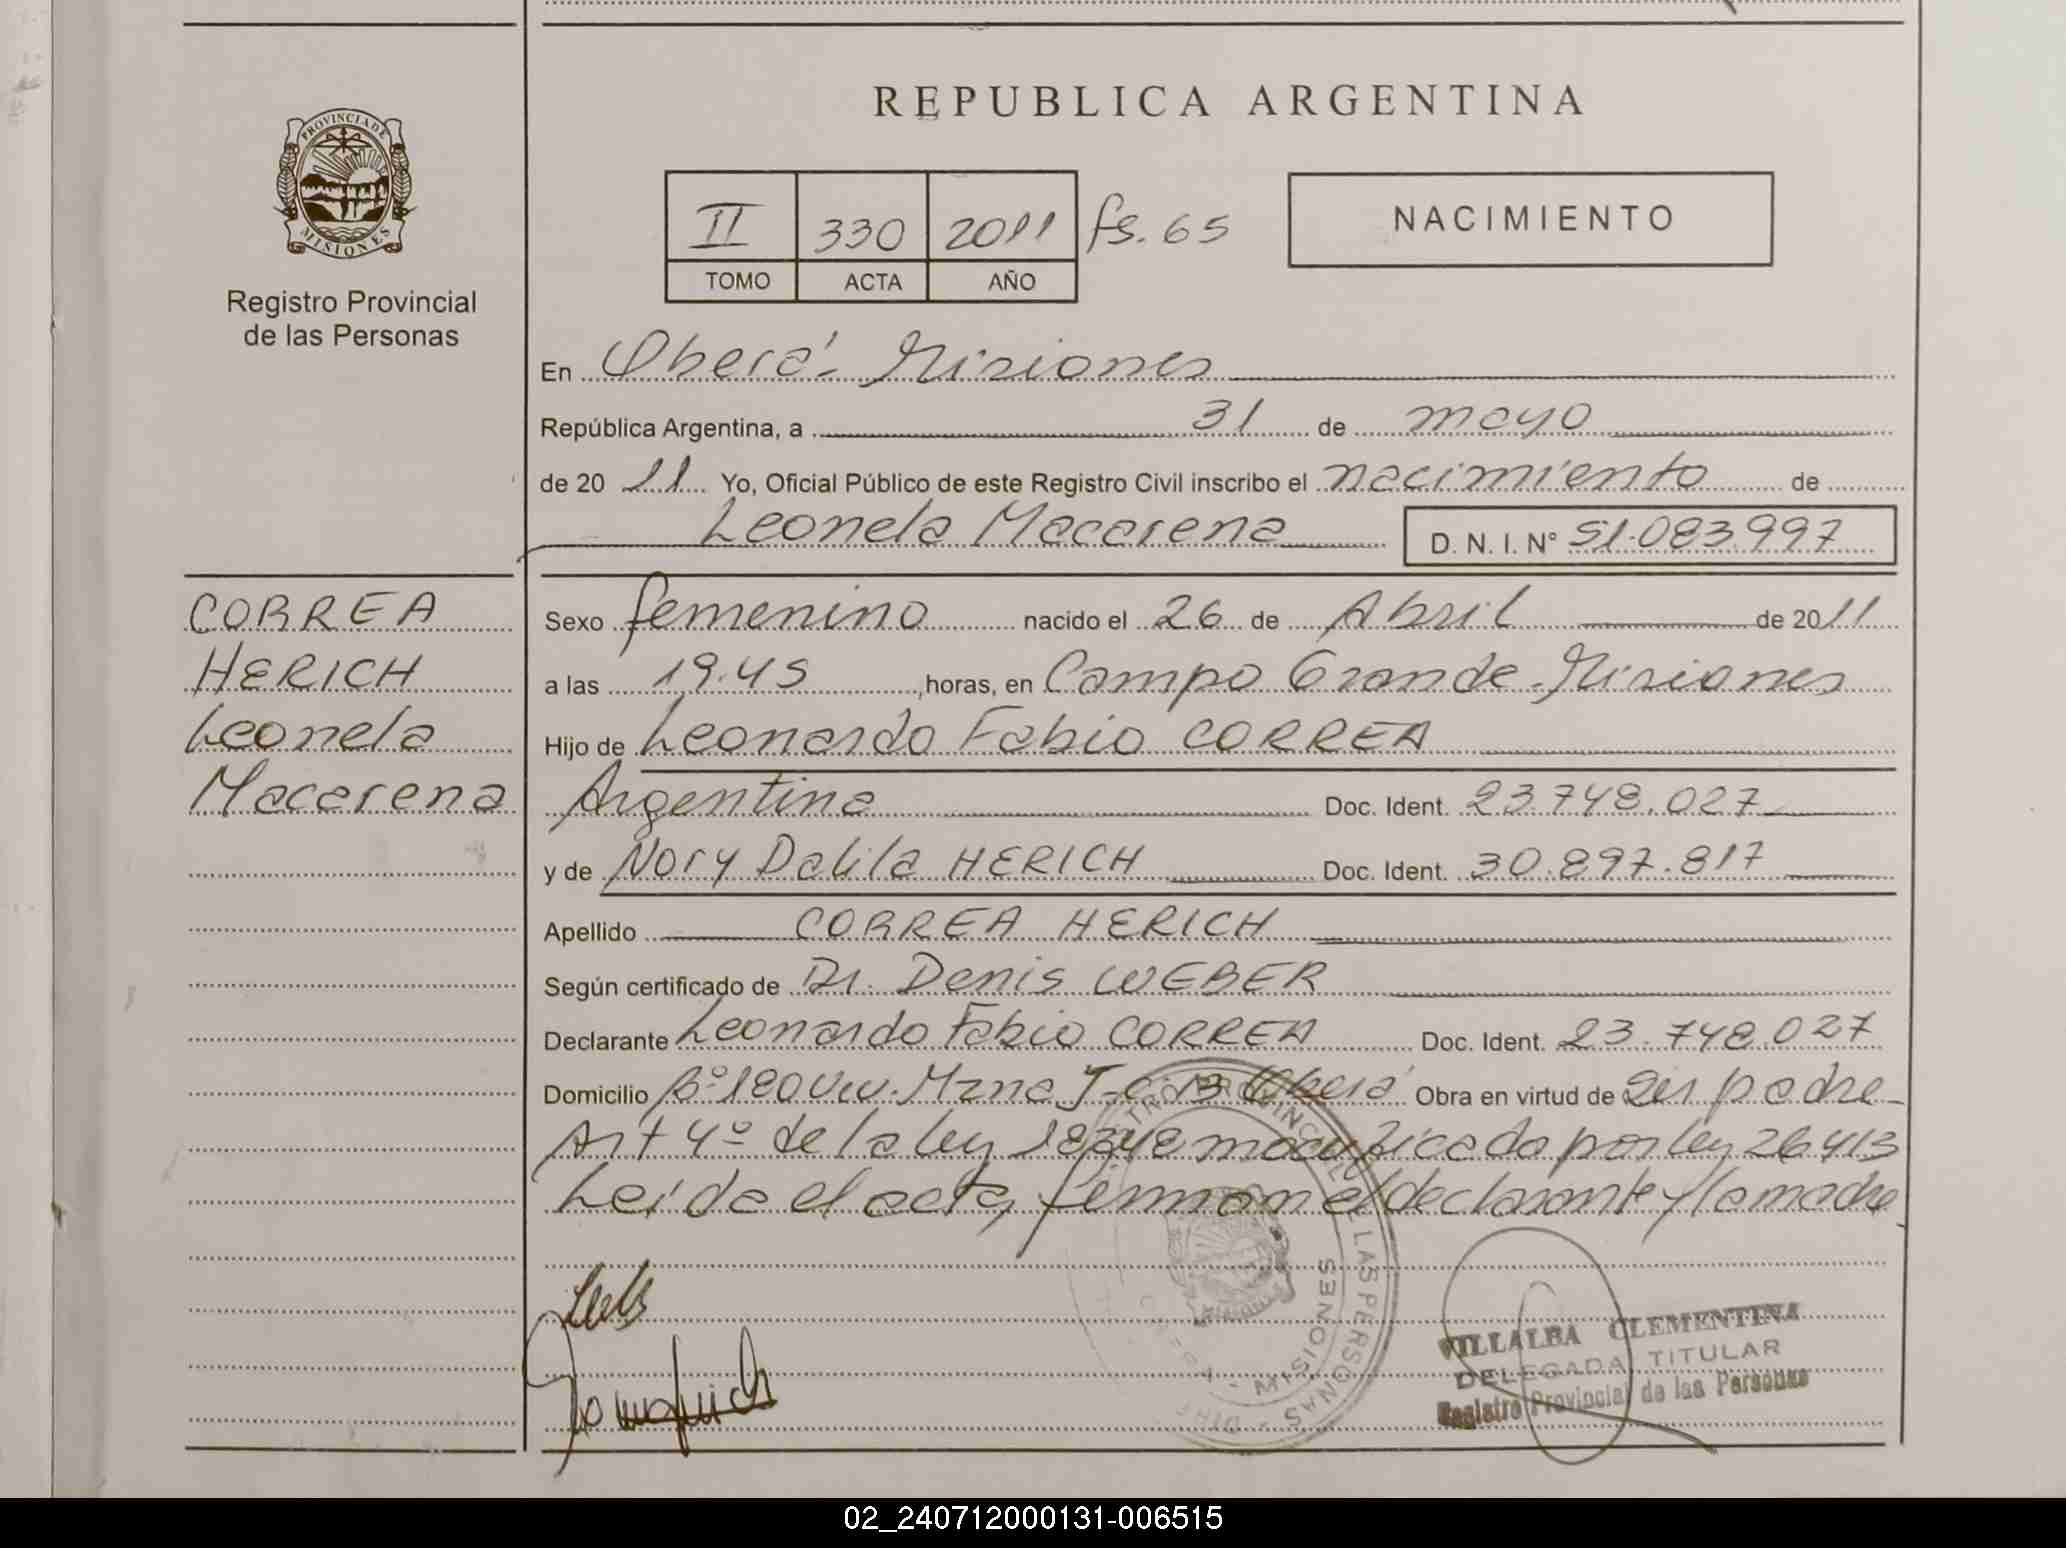 REPUBLICA ARGENTINA
PROVINCIA DE
MISIONES
Registro Provincial
de las Personas
II 330 2011 fs. 65
TOMO ACTA AÑO
NACIMIENTO
En Oberá - Misiones
República Argentina, a 31 de mayo
de 2011 Yo, Oficial Público de este Registro Civil inscribo el nacimiento de
Leonela Macarena D. N. I. N° 51.083.997
CORREA
HERICH
Leonela
Macarena
Sexo femenino nacido el 26 de Abril de 2011
a las 19.45 horas, en Campo Grande - Misiones
Hijo de Leonardo Fabio CORREA
Argentina Doc. Ident. 23.748.027
y de Nory Dalila HERICH Doc. Ident. 30.897.817
Apellido CORREA HERICH
Según certificado de Dr. Denis WEBER
Declarante Leonardo Fabio CORREA Doc. Ident. 23.748.027
Domicilio B° 180 Viv. Mzna J - c. 13 Oberá Obra en virtud de Ser padre
Art 4° de la ley 18248 modificado por ley 26413
Leída el acta, firman el declarante y la madre
MISIONES
VILLALBA CLEMENTINA
DELEGADA TITULAR
Registro Provincial de las Personas
02_240712000131-006515